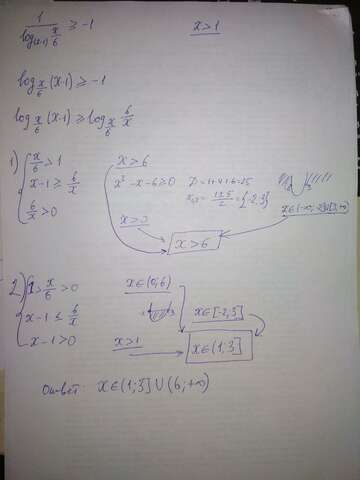 1/log_(x-1) x/6 ≥ -1    x>1
log_x/6 (x-1) ≥ -1
log_x/6 (x-1) ≥ log_x/6 6/x
1) { x/6 > 1    x>6
x-1 ≥ 6/x    x²-x-6≥0    D=1+4·6=25
x₁,₂ = (1±5)/2 = {-2;3}
6/x > 0    x>0
x>6
2) { 1 > x/6 > 0    x∈(0;6)
x-1 ≤ 6/x    x∈[-2;3]
x-1>0    x>1    x∈(1;3]
Ответ: x∈(1;3]∪(6;+∞)